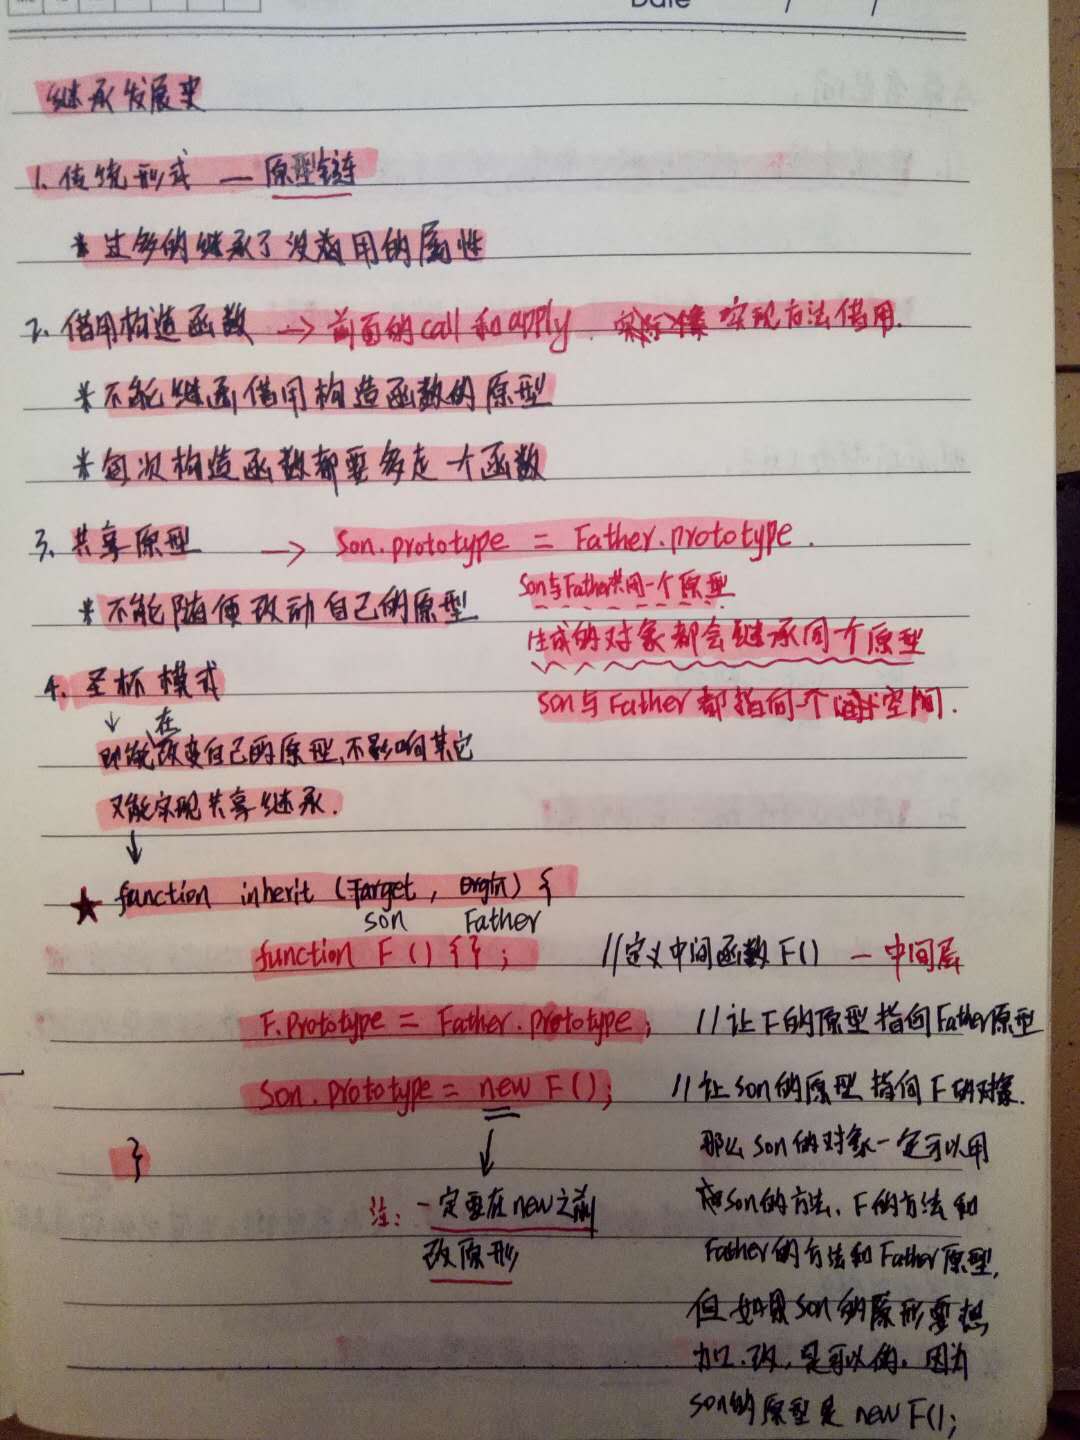 Date / /
继承发展史
1. 传统形式 — 原型链
* 过多的继承了没有用的属性
2. 借用构造函数 → 前面的call和apply. 实现方法借用.
* 不能继函借用构造函数的原型
* 每次构造函数都要多走一个函数
3. 共享原型 → Son.prototype = Father.prototype.
Son与Father共同一个原型
* 不能随便改动自己的原型
生成的对象都会继承同一个原型
4. 圣杯模式
Son与Father都指向一个空间.
↓ 在
即能改变自己的原型,不影响其它
又能实现共享继承.
↓
★ function inherit (Target, Orgin) {
son Father
function F () { }; //定义中间函数F() — 中间层
F.prototype = Father.prototype; //让F的原型指向Father原型
Son.prototype = new F(); //让son的原型指向F的对象.
} 那么son的对象一定可以用
注: 一定要在new之前 son的方法、F的方法和
改原形 Father的方法和Father原型,
但如果son的原形要想
加、改,是可以的。因为
son的原型是 new F();